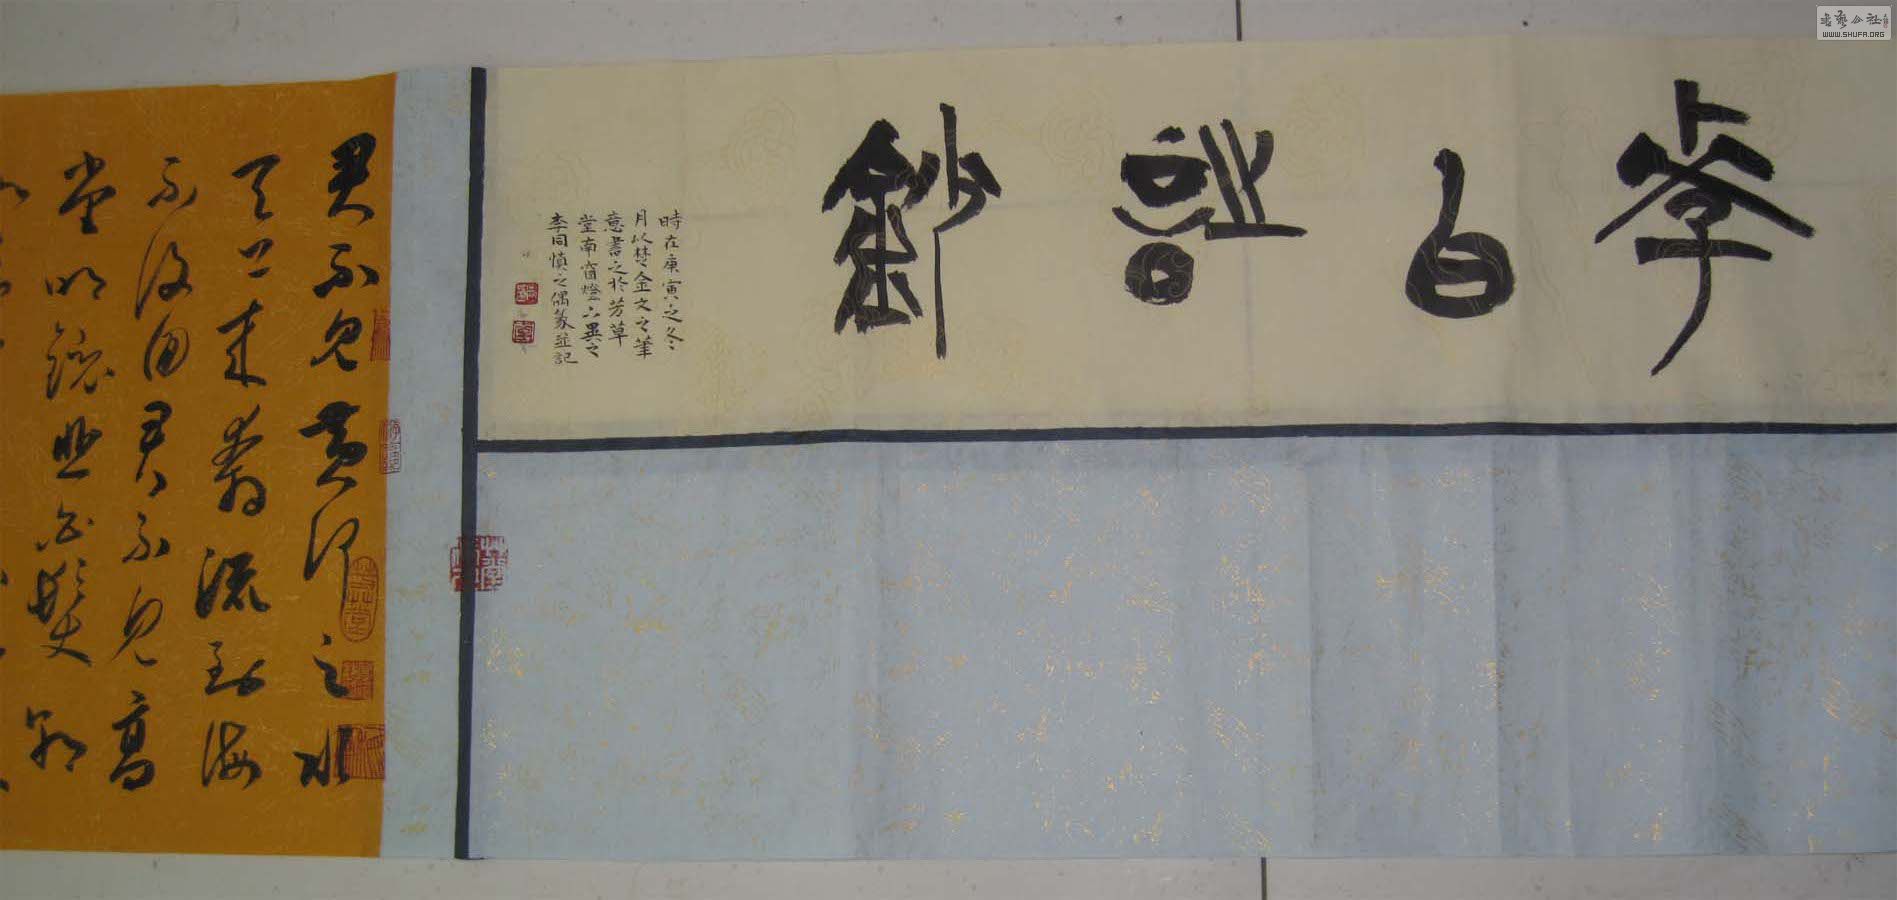 李白詩鈔
時在庚寅之冬
月以楚金文之筆
意書之於芳草
堂南窗燈下異之
李同慎之偶篆並記
君不見黃河之水
天上来奔流到海
不復回君不見高
堂明鏡悲白髮朝
WWW.SHUFA.ORG